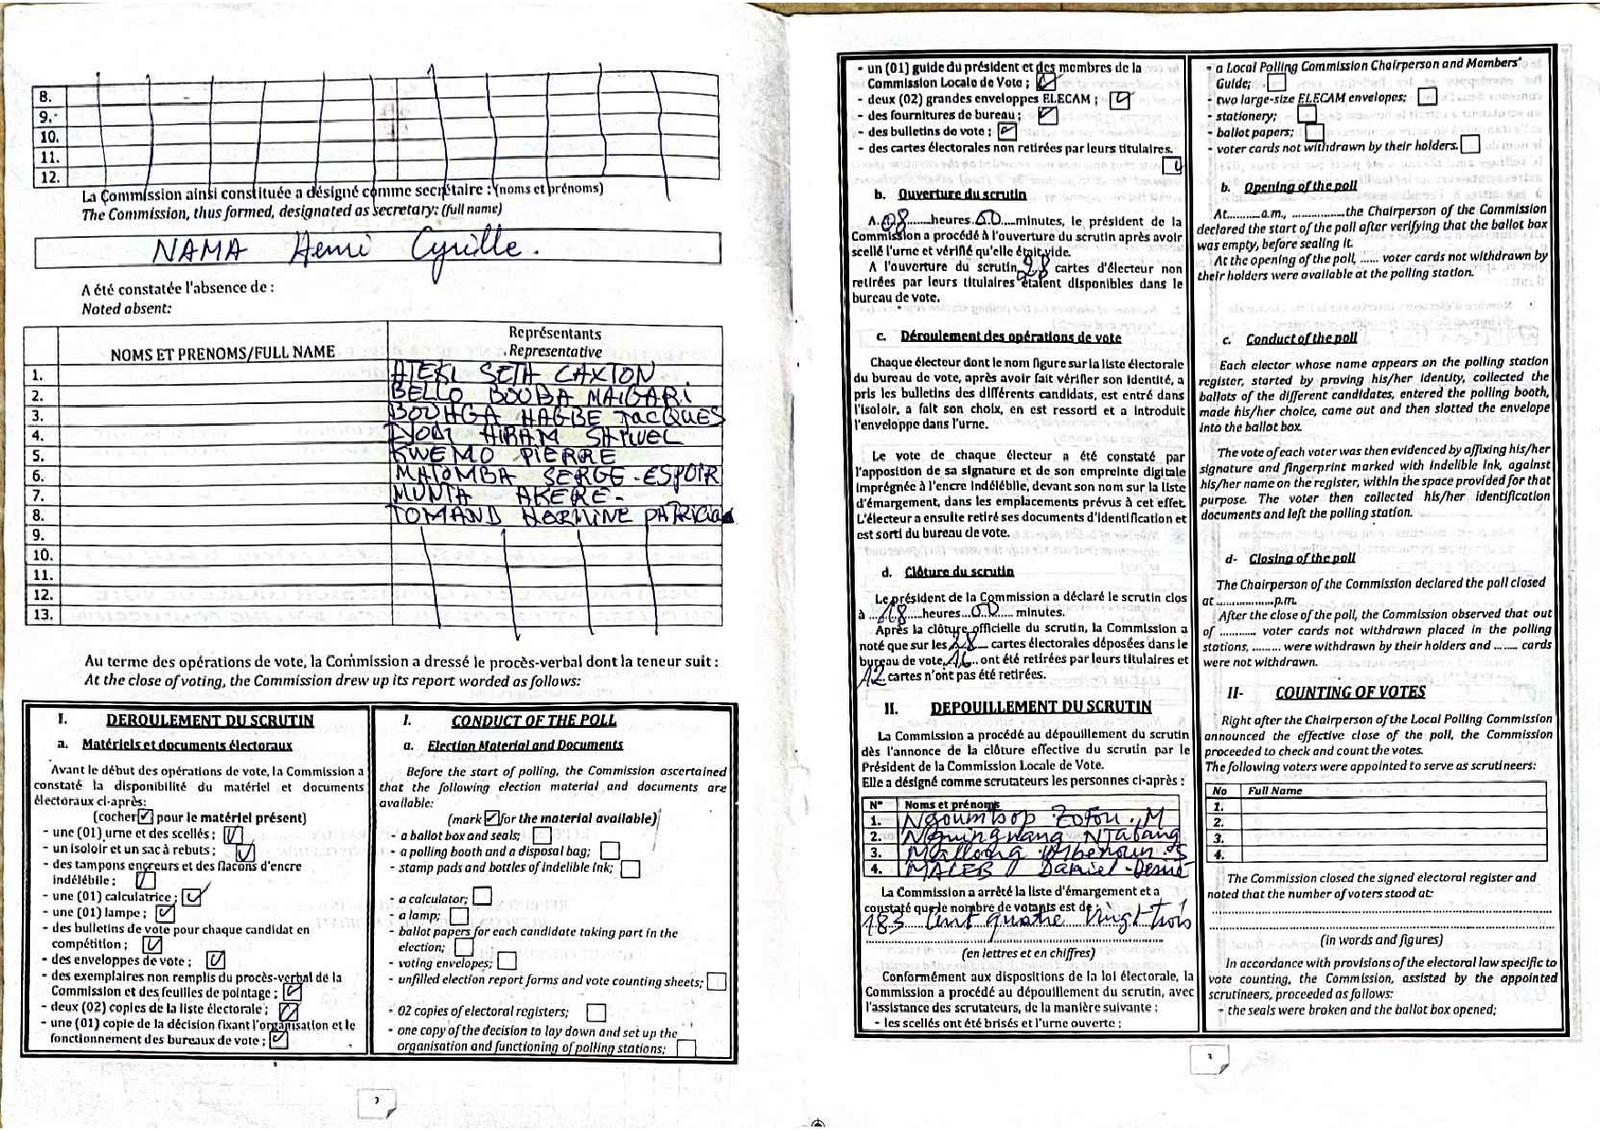 8.
9.
10.
11.
12.
La Commission ainsi constituée a désigné comme secrétaire : (noms et prénoms)
The Commission, thus formed, designated as secretary: (full name)
NAMA Henri Cyrille.
A été constatée l'absence de :
Noted absent:
NOMS ET PRENOMS/FULL NAME
Représentants
Representative
1. ATEKI SETA CAXTON
2. BELLO BOUBA MAIGARI
3. BOUHGA HAGBE JACQUES
4. HIRAM SAMUEL
5. KWEMO PIERRE
6. MATOMBA SERGE-ESPOIR
7. MUNTA AKERE-
8. TOMAINO HERMINE PATRICIA
9.
10.
11.
12.
13.
Au terme des opérations de vote, la Commission a dressé le procès-verbal dont la teneur suit :
At the close of voting, the Commission drew up its report worded as follows:
I. DEROULEMENT DU SCRUTIN
a. Matériels et documents électoraux
Avant le début des opérations de vote, la Commission a
constaté la disponibilité du matériel et documents
électoraux ci-après:
(cocher ☑ pour le matériel présent)
- une (01) urne et des scellés ;
- un isoloir et un sac à rebuts ;
- des tampons encreurs et des flacons d'encre
indélébile ;
- une (01) calculatrice ;
- une (01) lampe ;
- des bulletins de vote pour chaque candidat en
compétition ;
- des enveloppes de vote ;
- des exemplaires non remplis du procès-verbal de la
Commission et des feuilles de pointage ;
- deux (02) copies de la liste électorale ;
- une (01) copie de la décision fixant l'organisation et le
fonctionnement des bureaux de vote ;
I. CONDUCT OF THE POLL
a. Election Material and Documents
Before the start of polling, the Commission ascertained
that the following election material and documents are
available:
(mark ☑ for the material available)
- a ballot box and seals;
- a polling booth and a disposal bag;
- stamp pads and bottles of indelible ink;
- a calculator;
- a lamp;
- ballot papers for each candidate taking part in the
election;
- voting envelopes;
- unfilled election report forms and vote counting sheets;
- 02 copies of electoral registers;
- one copy of the decision to lay down and set up the
organisation and functioning of polling stations;
2
- un (01) guide du président et des membres de la
Commission Locale de Vote ;
- deux (02) grandes enveloppes ELECAM ;
- des fournitures de bureau ;
- des bulletins de vote ;
- des cartes électorales non retirées par leurs titulaires.
b. Ouverture du scrutin
A 08 heures 00 minutes, le président de la
Commission a procédé à l'ouverture du scrutin après avoir
scellé l'urne et vérifié qu'elle était vide.
A l'ouverture du scrutin 28 cartes d'électeur non
retirées par leurs titulaires étaient disponibles dans le
bureau de vote.
c. Déroulement des opérations de vote
Chaque électeur dont le nom figure sur la liste électorale
du bureau de vote, après avoir fait vérifier son identité, a
pris les bulletins des différents candidats, est entré dans
l'isoloir, a fait son choix, en est ressorti et a introduit
l'enveloppe dans l'urne.
Le vote de chaque électeur a été constaté par
l'apposition de sa signature et de son empreinte digitale
imprégnée à l'encre indélébile, devant son nom sur la liste
d'émargement, dans les emplacements prévus à cet effet.
L'électeur a ensuite retiré ses documents d'identification et
est sorti du bureau de vote.
d. Clôture du scrutin
Le président de la Commission a déclaré le scrutin clos
à 18 heures 00 minutes.
Après la clôture officielle du scrutin, la Commission a
noté que sur les 28 cartes électorales déposées dans le
bureau de vote, 16 ont été retirées par leurs titulaires et
12 cartes n'ont pas été retirées.
II. DEPOUILLEMENT DU SCRUTIN
La Commission a procédé au dépouillement du scrutin
dès l'annonce de la clôture effective du scrutin par le
Président de la Commission Locale de Vote.
Elle a désigné comme scrutateurs les personnes ci-après :
N° Noms et prénoms
1. Ngoumtsop Zofou .M
2. Ntabang
3. Mallong
4. Daniel Désiré
La Commission a arrêté la liste d'émargement et a
constaté que le nombre de votants est de :
183 Cent quatre vingt trois
(en lettres et en chiffres)
Conformément aux dispositions de la loi électorale, la
Commission a procédé au dépouillement du scrutin, avec
l'assistance des scrutateurs, de la manière suivante :
- les scellés ont été brisés et l'urne ouverte ;
- a Local Polling Commission Chairperson and Members'
Guide;
- two large-size ELECAM envelopes;
- stationery;
- ballot papers;
- voter cards not withdrawn by their holders.
b. Opening of the poll
At..........a.m., ................the Chairperson of the Commission
declared the start of the poll after verifying that the ballot box
was empty, before sealing it.
At the opening of the poll, ...... voter cards not withdrawn by
their holders were available at the polling station.
c. Conduct of the poll
Each elector whose name appears on the polling station
register, started by proving his/her identity, collected the
ballots of the different candidates, entered the polling booth,
made his/her choice, came out and then slotted the envelope
into the ballot box.
The vote of each voter was then evidenced by affixing his/her
signature and fingerprint marked with indelible ink, against
his/her name on the register, within the space provided for that
purpose. The voter then collected his/her identification
documents and left the polling station.
d- Closing of the poll
The Chairperson of the Commission declared the poll closed
at ................p.m.
After the close of the poll, the Commission observed that out
of ........... voter cards not withdrawn placed in the polling
stations, ........ were withdrawn by their holders and ....... cards
were not withdrawn.
II- COUNTING OF VOTES
Right after the Chairperson of the Local Polling Commission
announced the effective close of the poll, the Commission
proceeded to check and count the votes.
The following voters were appointed to serve as scrutineers:
No Full Name
1.
2.
3.
4.
The Commission closed the signed electoral register and
noted that the number of voters stood at:
(in words and figures)
In accordance with provisions of the electoral law specific to
vote counting, the Commission, assisted by the appointed
scrutineers, proceeded as follows:
- the seals were broken and the ballot box opened;
3